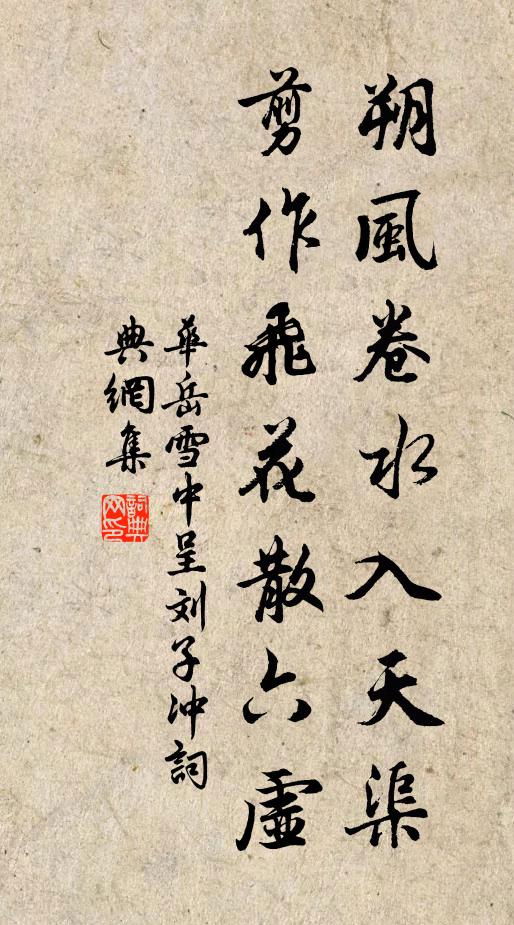 朔風卷水入天渠
剪作飛花散六虛
華岳雪中呈刘子冲詞
典網集
詞典网印